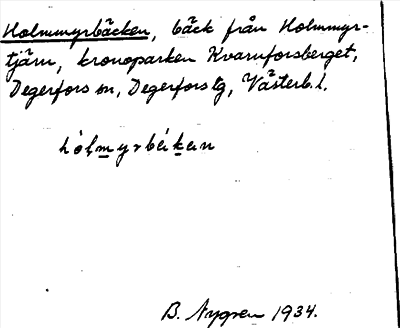 Holmmyrbäcken, bäck från Holmmyr-
tjärn, kronoparken Kvarnforsberget,
Degerfors sn, Degerfors tg, Västerb. l.
hólmyrbékən
B. Nygren 1934.